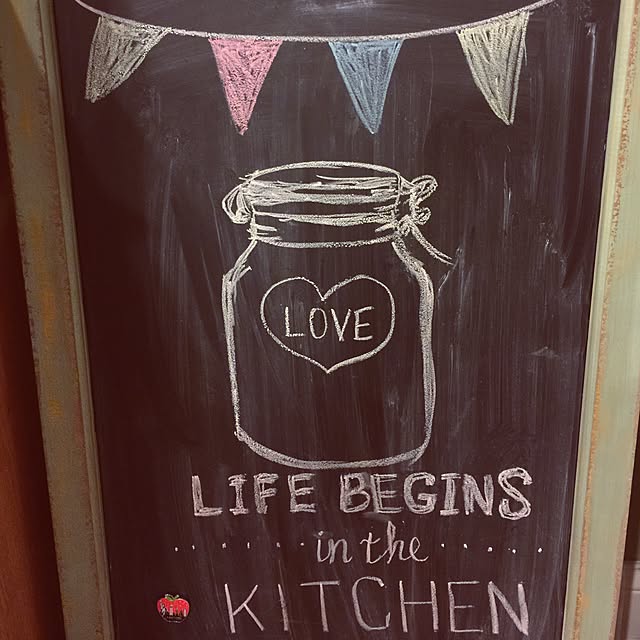 LOVE
LIFE BEGINS
in the
KITCHEN